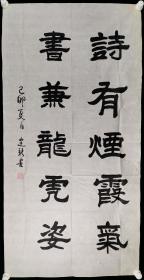 詩有煙霞氣
書兼龍虎姿
己卯夏月